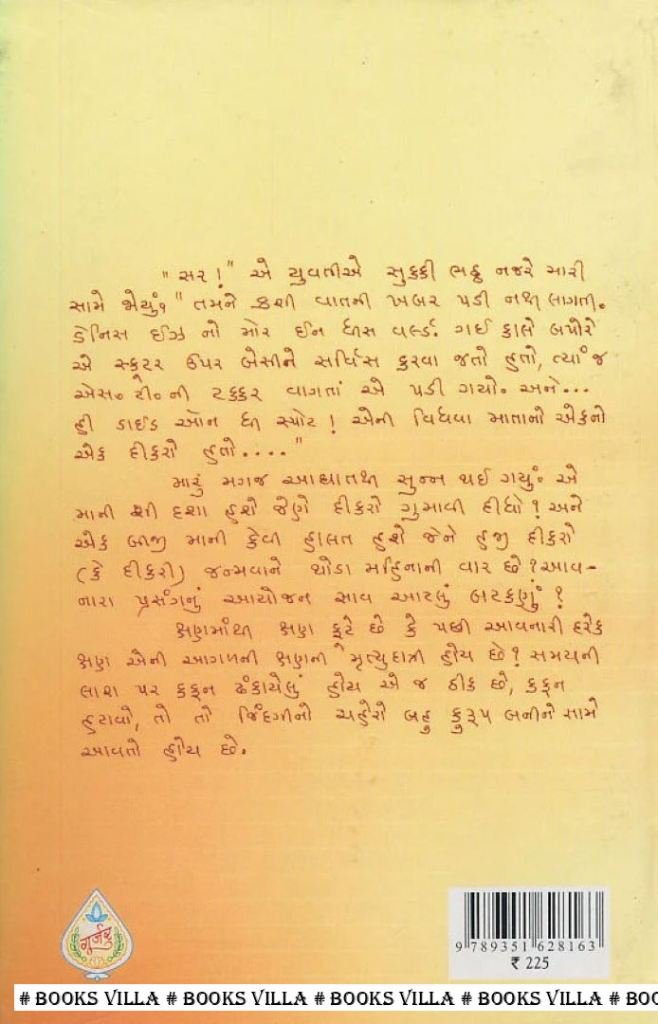 "સર!" એ યુવતીએ સુક્કી ભઠ્ઠ નજરે મારી
સામે જોયું: "તમને કશી વાતની ખબર પડી નથી લાગતી.
ડેનિસ ઈઝ નો મોર ઈન ધીસ વર્લ્ડ. ગઈ કાલે બપોરે
એ સ્કુટર ઉપર બેસીને સર્વિસ કરવા જતો હતો, ત્યાં જ
એસ. ટી. ની ટક્કર વાગતાં એ પડી ગયો. અને...
હી ડાઈડ ઑન ધી સ્પોટ! એની વિધવા માતાનો એકનો
એક દીકરો હતો...."
મારું મગજ આઘાતથી સુન્ન થઈ ગયું. એ
માની શી દશા હશે જેણે દીકરો ગુમાવી દીધો? અને
એક બીજી માની કેવી હાલત હશે જેને હજી દીકરો
(કે દીકરી) જન્મવાને થોડા મહિનાની વાર છે? આવ-
નારા પ્રસંગનું આયોજન સાવ આટલું બટકણું?
ક્ષણમાંથી ક્ષણ ફૂટે છે કે પછી આવનારી દરેક
ક્ષણ એની આગળની ક્ષણની મૃત્યુદાત્રી હોય છે? સમયની
લાશ પર કફન ઢંકાયેલું હોય એ જ ઠીક છે, કફન
હટાવો, તો તો જિંદગીનો ચહેરો બહુ કુરૂપ બનીને સામે
આવતો હોય છે.
ગુર્જર
9 789351 628163
₹ 225
# BOOKS VILLA # BOOKS VILLA # BOOKS VILLA # BOOKS VILLA # BOO